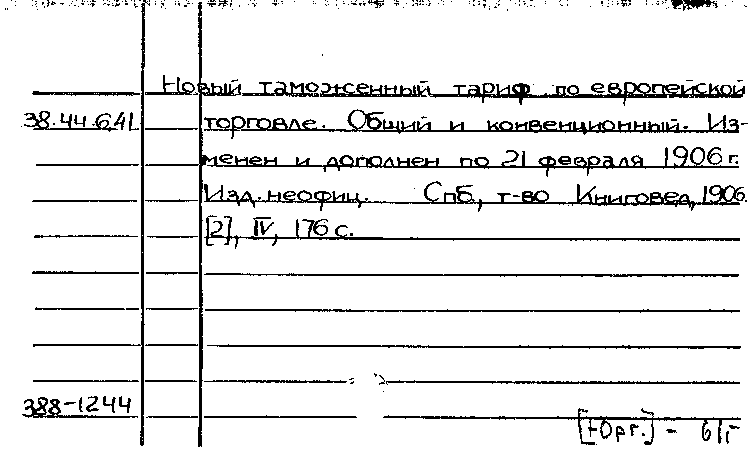 Новый таможенный тариф по европейской
38.44.6.41 торговле. Общий и конвенционный. Из-
менен и дополнен по 21 февраля 1906 г.
Изд. неофиц. СПб., т-во Книговед, 1906.
[2], IV, 176 с.
388-1244
[Юрг.] - б/г